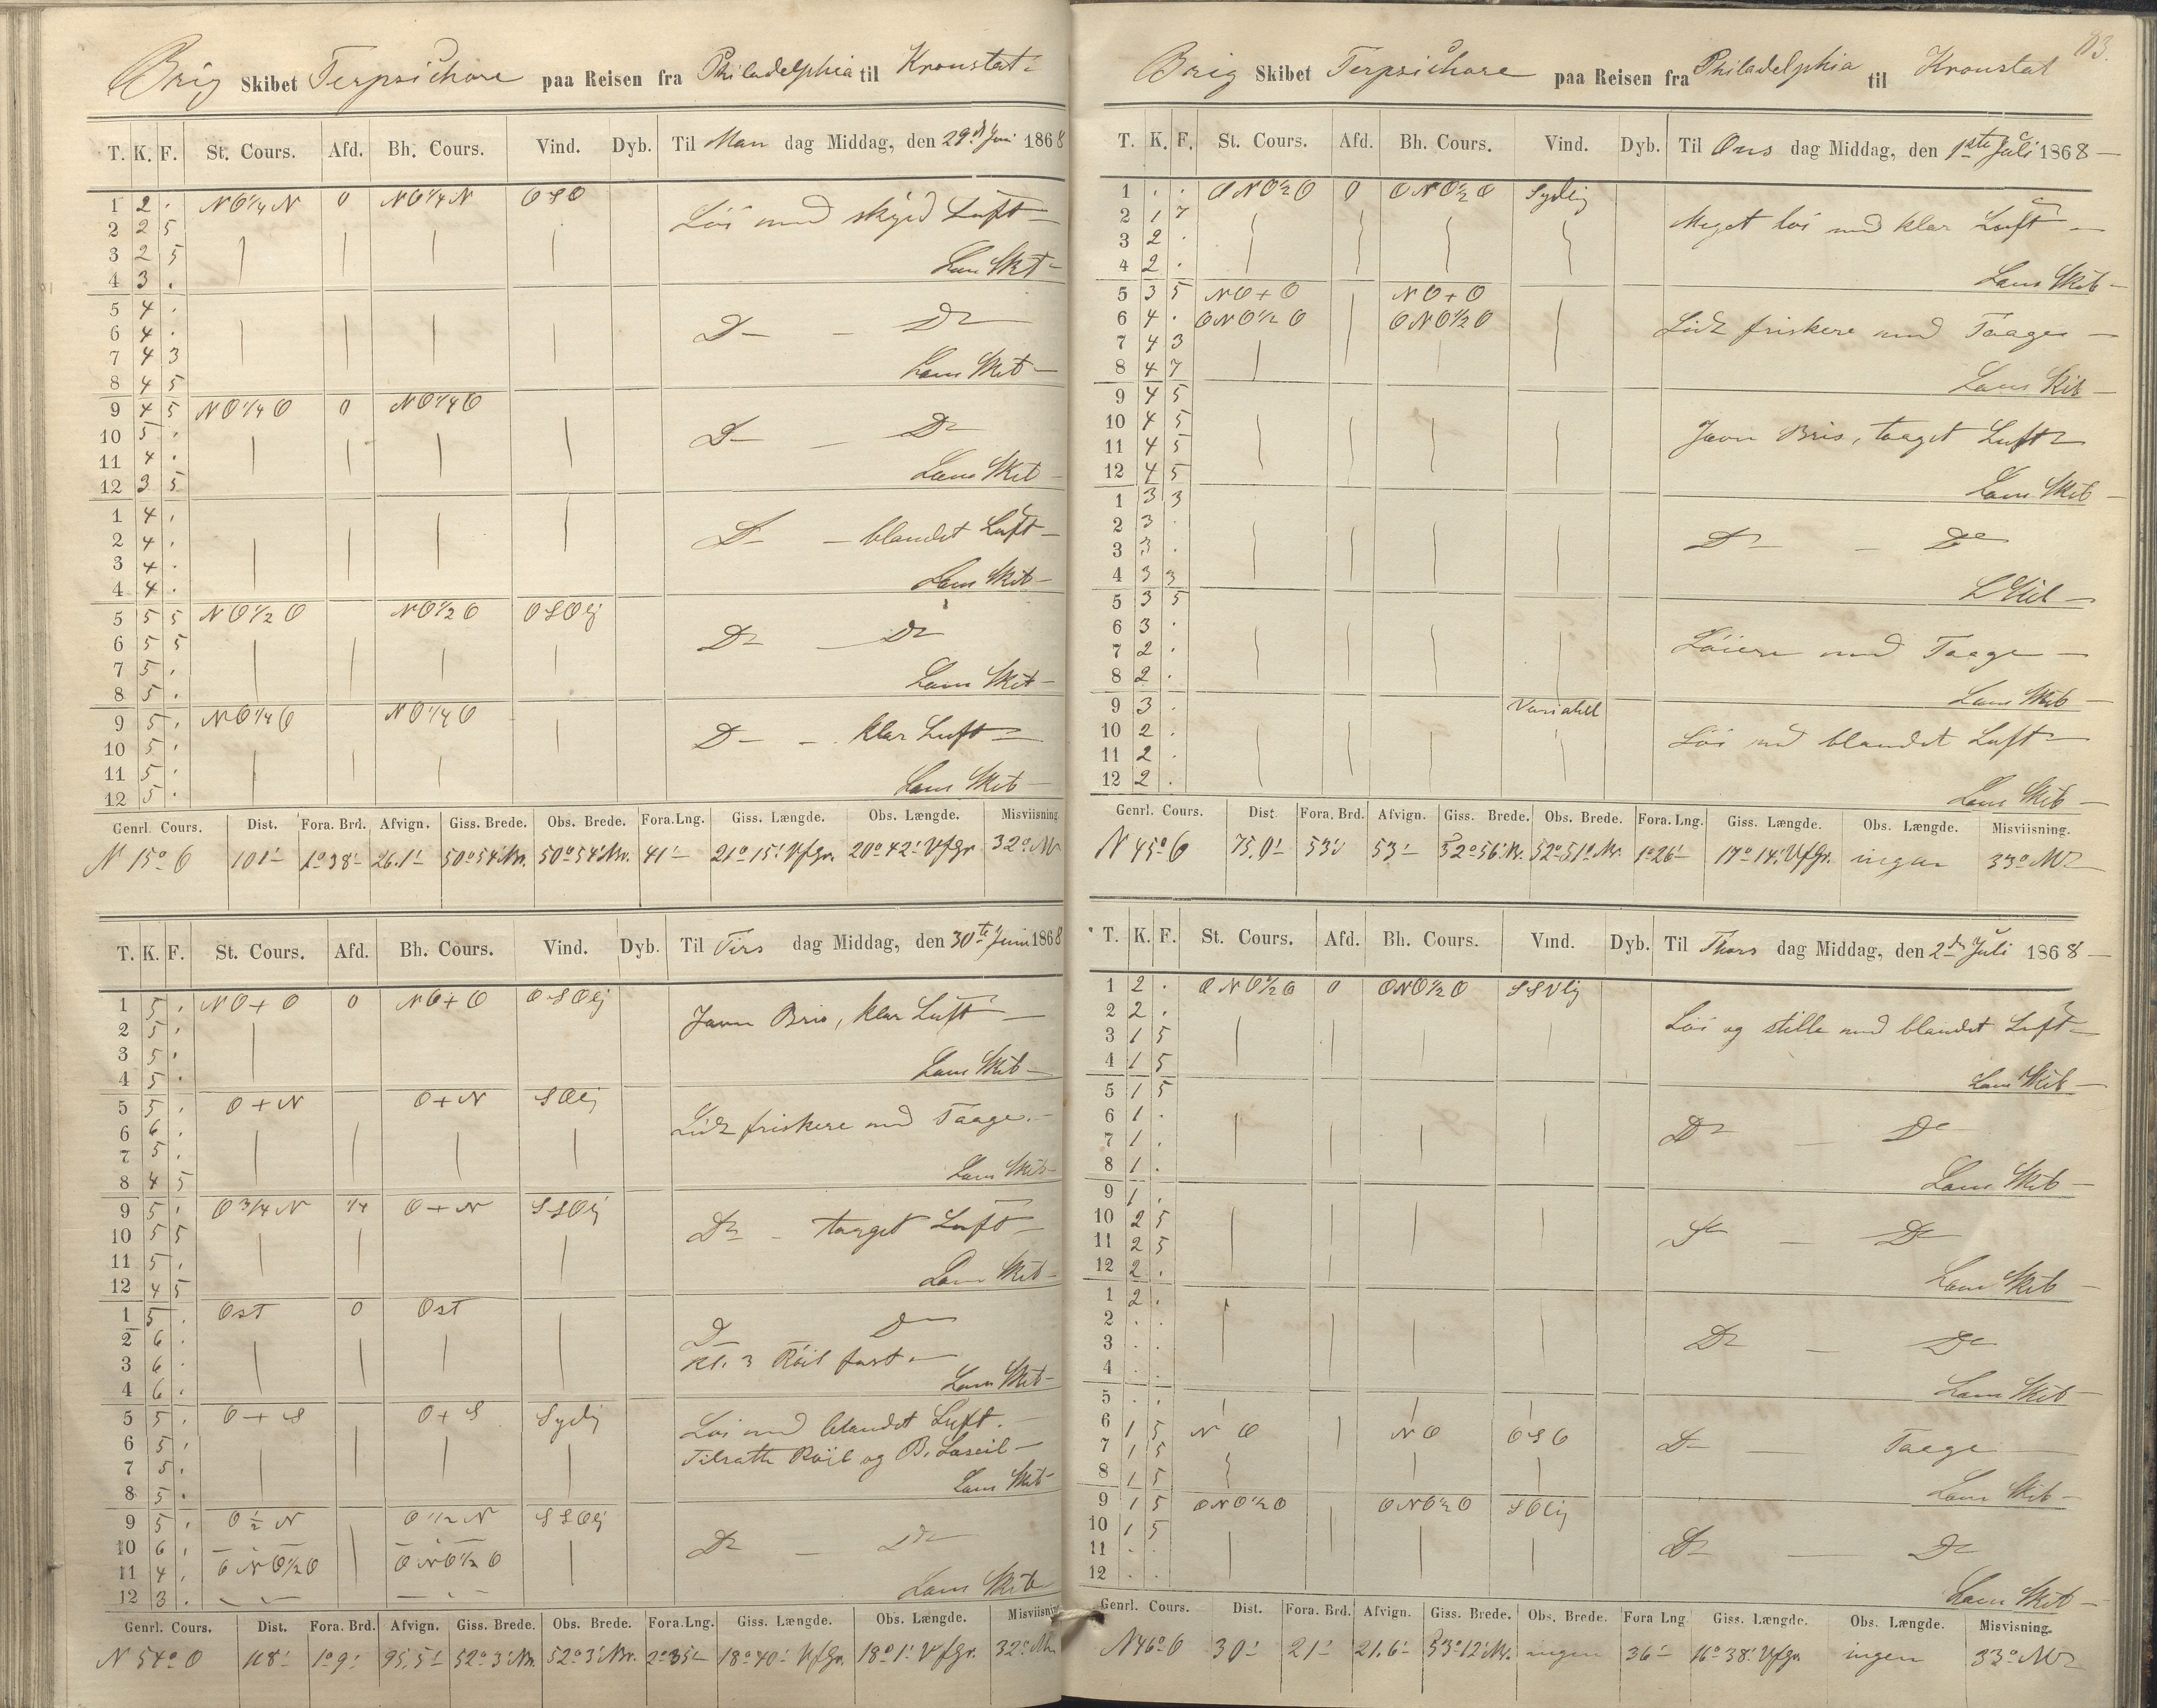 Brig Skibet Terpsichore paa Reisen fra Philadelphia til Kronstat
T. K. F. St. Cours. Afd. Bh. Cours. Vind. Dyb. Til Man dag Middag, den 29d Juni 1868
1 2 . NO 1/4 N 0 NO 1/4 N OSO
2 2 5 Löi med skyed Luft
3 2 5
4 3 . Lens Skib
5 4 .
6 4 . D D
7 4 3
8 4 5 Lens Skib
9 4 5 NO 1/4 O 0 NO 1/4 O
10 5 . D D
11 4 .
12 3 5 Lens Skib
1 4 .
2 4 . D blandet Luft
3 4 .
4 4 . Lens Skib
5 5 5 NO 1/2 O NO 1/2 O OSOlj
6 5 5 D D
7 5 .
8 5 . Lens Skib
9 5 . NO 1/4 O NO 1/4 O
10 5 . D klar Luft
11 5 .
12 5 . Lens Skib
Genrl. Cours. Dist. Fora. Brd. Afvign. Giss. Brede. Obs. Brede. Fora. Lng. Giss. Længde. Obs. Længde. Misviisning
N 15° O 101' 1° 38' 26.1' 50° 54' Nr. 50° 54' Nr. 41' 21° 15' VfGr. 20° 42' VfGr 32°
T. K. F. St. Cours. Afd. Bh. Cours. Vind. Dyb. Til Tirs dag Middag, den 30te Juni 1868
1 5 . NO + O 0 NO + O OSOlj
2 5 . Javn Bris, klar Luft
3 5 .
4 5 . Lens Skib
5 5 . O + N O + N SOlj
6 6 . Lidt friskere med Taage.
7 5 .
8 4 5 Lens Skib
9 5 . O 3/4 N 1/4 O + N SSOlj
10 5 5 D taaget Luft
11 5 .
12 4 5 Lens Skib
1 5 . Ost 0 Ost
2 6 . D D
3 6 . Kl. 3 Röil fast
4 6 . Lens Skib
5 5 . O + S O + S Sydlj
6 5 . Löi med blandet Luft.
7 5 . Tilsatte Röil og B. Læseil
8 5 . Lens Skib
9 5 . O 1/2 N O 1/2 N SSOlj
10 6 . D D
11 4 . ONO 1/2 O ONO 1/2 O
12 3 . Lens Skib
Genrl. Cours. Dist. Fora. Brd. Afvign. Giss. Brede. Obs. Brede. Fora. Lng. Giss. Længde. Obs. Længde. Misviisning
N 54° O 118' 1° 9' 95.5' 52° 3' Nr. 52° 3' Nr. 2° 35' 18° 40' VfGr. 18° 1' VfGr. 32°
83.
Brig Skibet Terpsichore paa Reisen fra Philadelphia til Kronstat
T. K. F. St. Cours. Afd. Bh. Cours. Vind. Dyb. Til Ons dag Middag, den 1ste Juli 1868
1 . . ONO 1/2 O 0 ONO 1/2 O Sydlj
2 1 7 Meget löi med klar Luft
3 2 .
4 2 . Lens Skib
5 3 5 NO + O NO + O
6 4 . ONO 1/2 O ONO 1/2 O Lidt friskere med Taage
7 4 3
8 4 7 Lens Skib
9 4 5
10 4 5 Javn Bris, taaget Luft
11 4 5
12 4 5 Lens Skib
1 3 3
2 3 .
3 3 . D D
4 3 3 L Skib
5 3 5
6 3 .
7 2 . Löiere med Taage
8 2 .
9 3 . Variabel Lens Skib
10 2 . Löi med blandet Luft
11 2 .
12 2 . Lens Skib
Genrl. Cours. Dist Fora. Brd. Afvign. Giss. Brede. Obs. Brede. Fora. Lng. Giss. Længde. Obs. Længde. Misviisning.
N 45° O 75.0' 53' 53' 52° 56' Nr. 52° 51' Nr. 1° 26' 17° 14' VfGr. ingen 33°
T. K. F. St. Cours. Afd. Bh. Cours. Vind. Dyb. Til Thors dag Middag, den 2den Juli 1868
1 2 . ONO 1/2 O 0 ONO 1/2 O SSVlj
2 2 . Löi og stille med blandet Luft
3 1 5
4 1 5 Lens Skib
5 1 5
6 1 .
7 1 . D D
8 1 . Lens Skib
9 1 .
10 2 5
11 2 5 D D
12 2 . Lens Skib
1 2 .
2 . .
3 . . D D
4 . . Lens Skib
5 . .
6 1 5 N O N O OSO
7 1 5 D Taage
8 1 5 Lens Skib
9 1 5 ONO 1/2 O ONO 1/2 O SOlij
10 1 5
11 . . D D
12 . . Lens Skib
Genrl. Cours. Dist. Fora. Brd. Afvign. Giss. Brede. Obs. Brede. Fora Lng Giss. Længde. Obs. Længde. Misvisning.
N 46° O 30' 21' 21.6' 53° 12' Nr. ingen 36' 16° 38' VfGr. ingen 33°